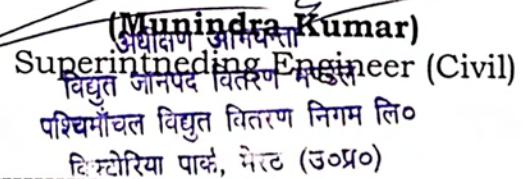 (Munindra Kumar)
अधीक्षण अभियन्ता
Superintneding Engineer (Civil)
विद्युत जानपद वितरण मण्डल
पश्चिमाँचल विद्युत वितरण निगम लि०
विक्टोरिया पार्क, मेरठ (उ०प्र०)